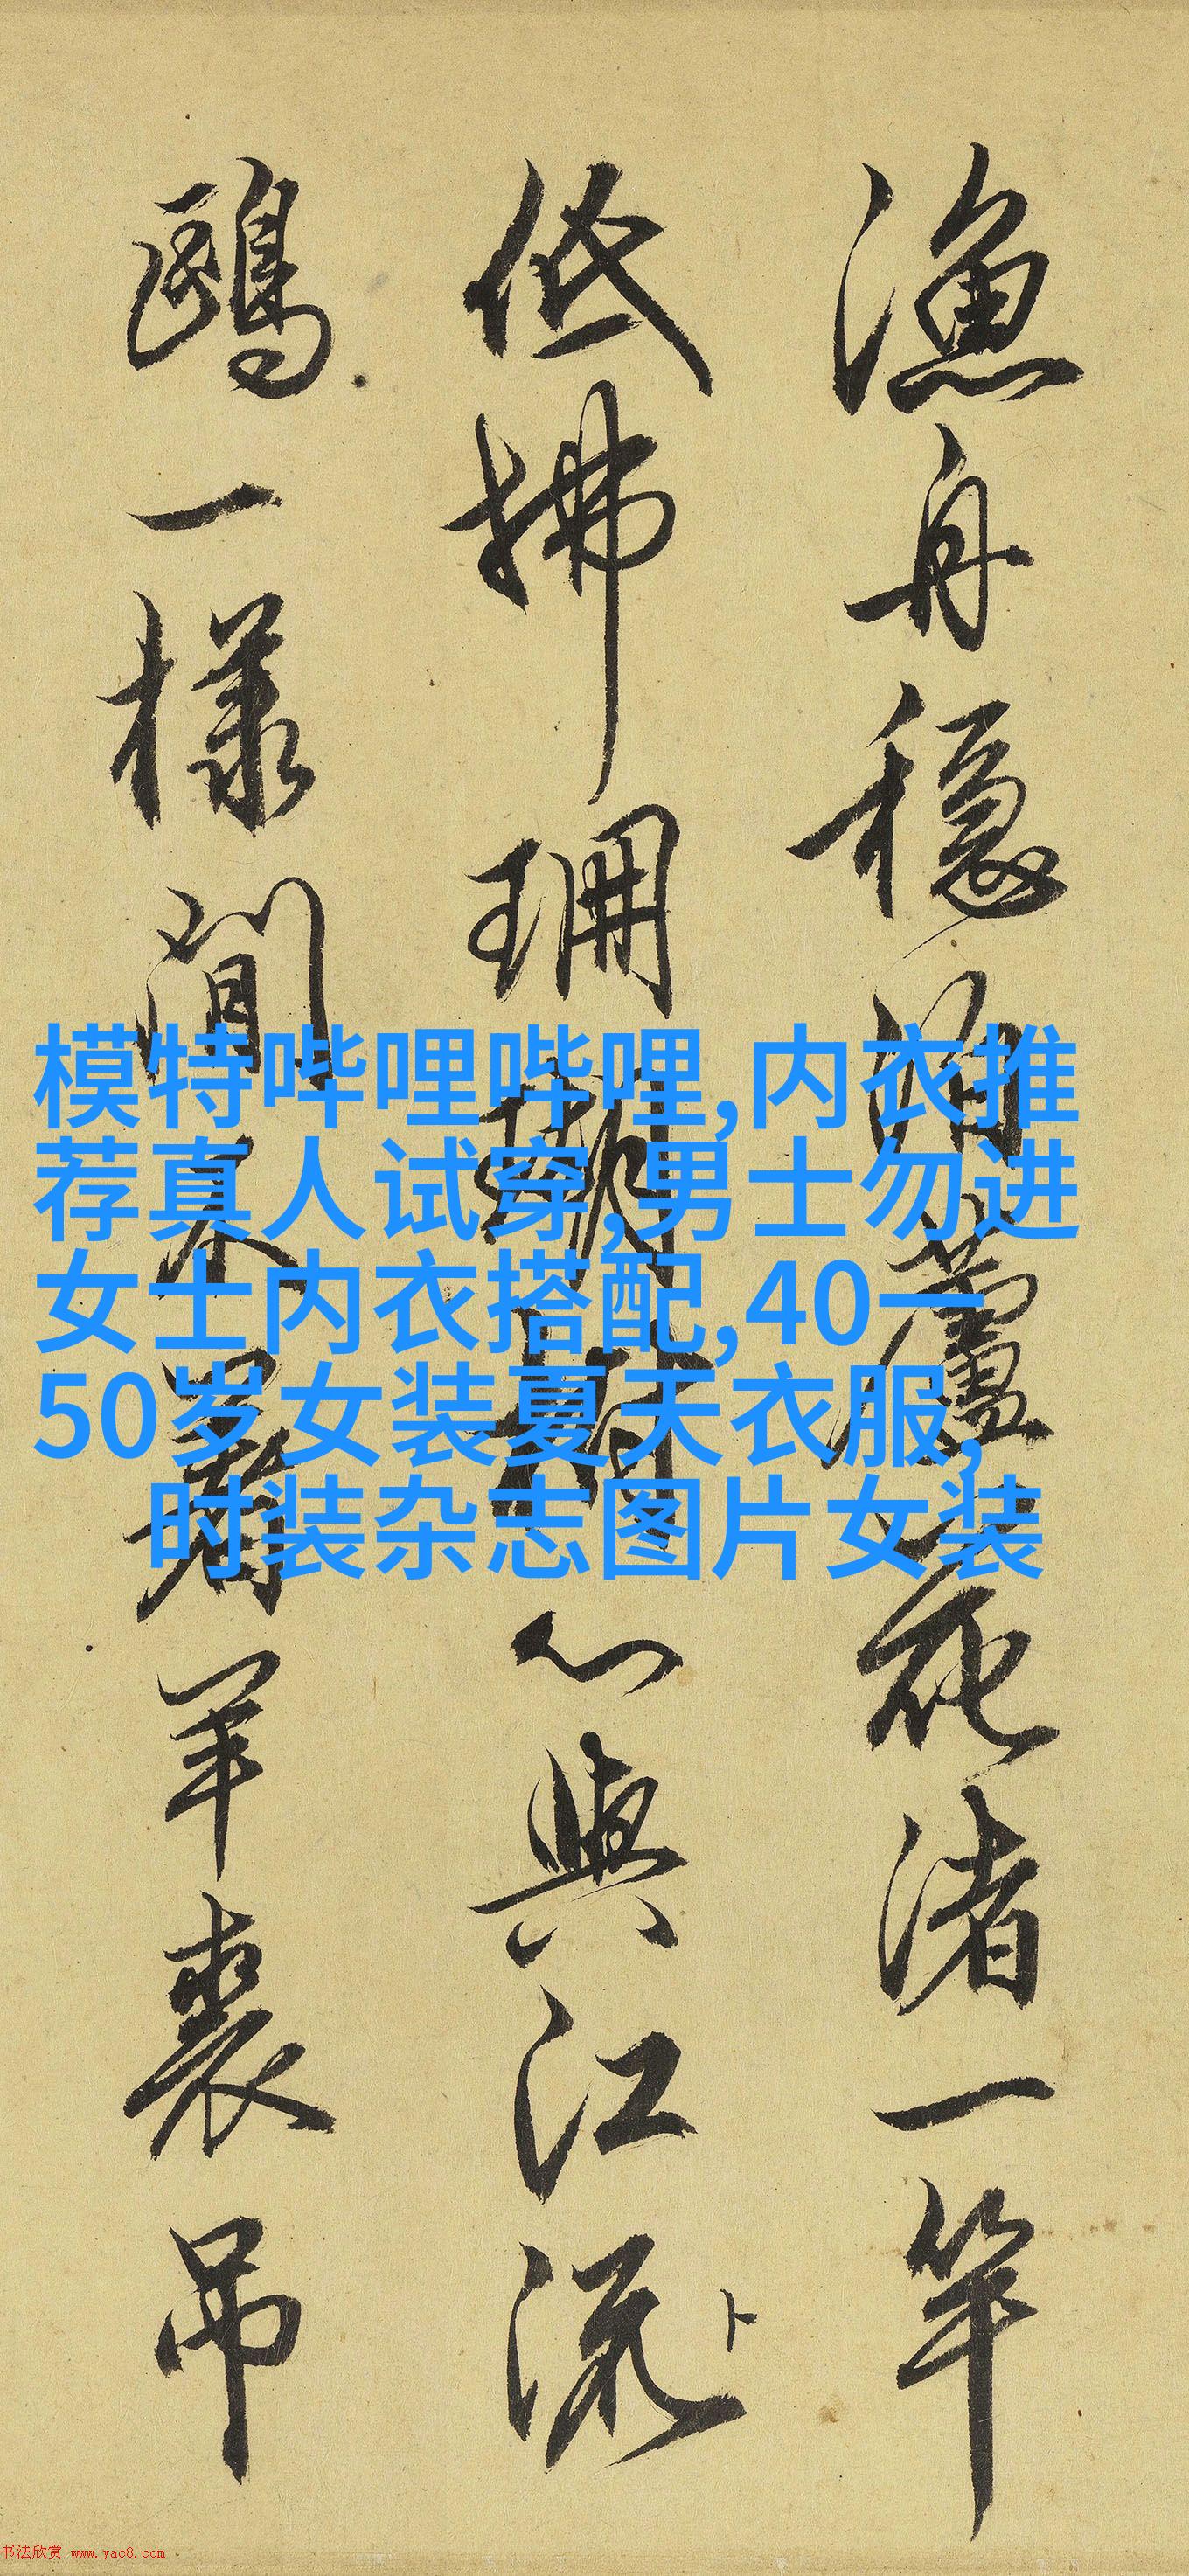 漁舟穩泊蘆花渚一竿
低拂珊瑚樹心與江流
鷗一樣閒不羊裘吊
模特哔哩哔哩,内衣推
荐真人试穿,男士勿进
女士内衣搭配,40一
50岁女装夏天衣服,
时装杂志图片女装
书法欣赏 www.yac8.com